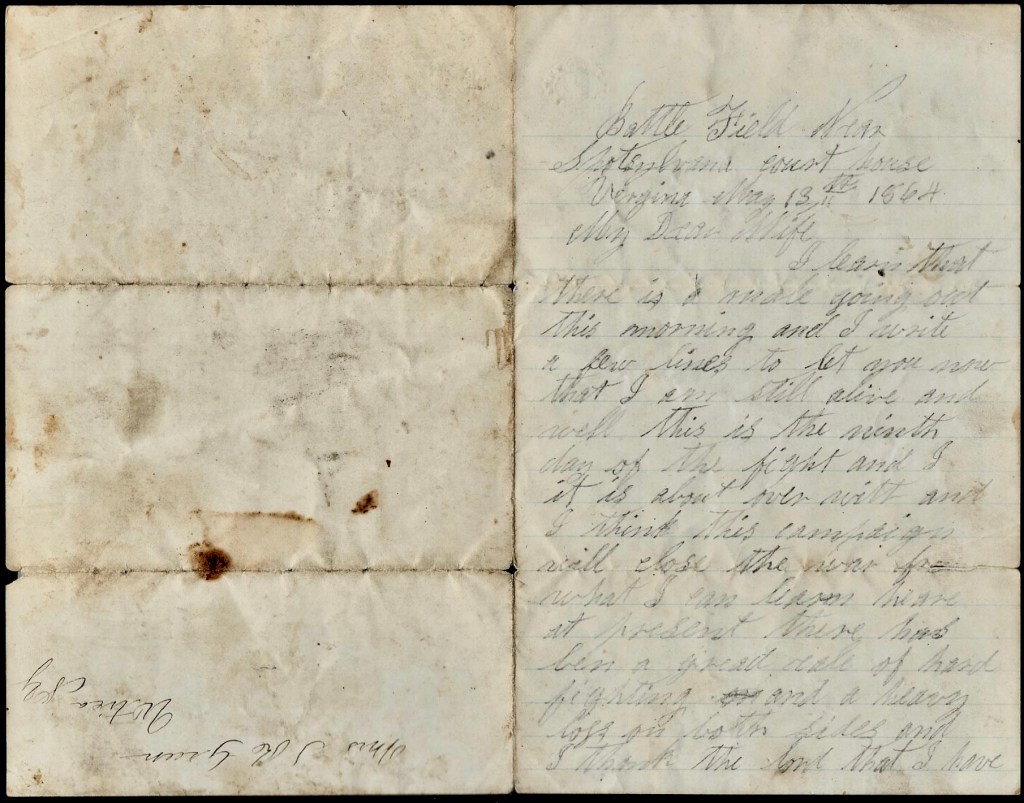 Battle Field Near
Spotsylvana court house
Vergina May 13th 1864
My Dear Wife
I learn that
there is a male going out
this morning and I write
a few lines to let you now
that I am still alive and
well this is the ninth
day of the fight and I
it is about over with and
I think this campaign
will close the war
what I can learn heare
at present there has
bein a gread deale of hard
fighting and a heavy
loss on both sides and
I thank the lord that I have
Mrs J H Green
Utica NY